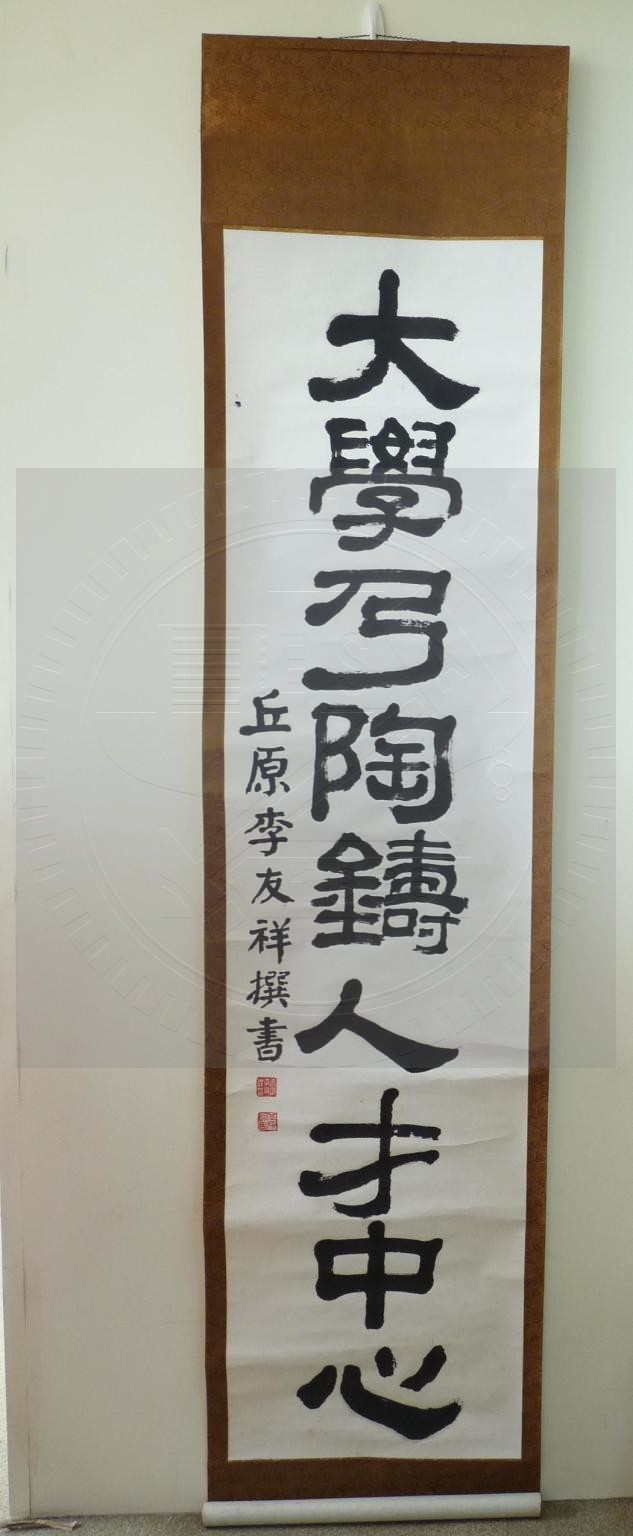 大學乃陶鑄人才中心
丘原李友祥撰書